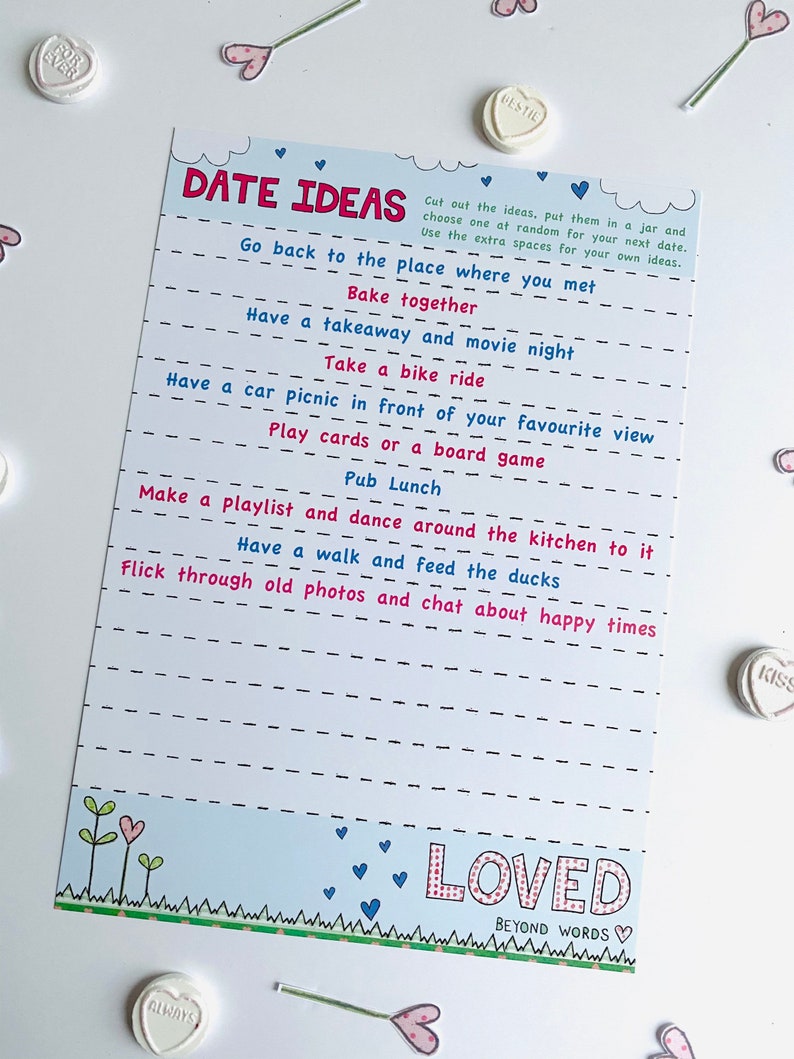 FOR
EVER
BESTIE
DATE IDEAS
Cut out the ideas, put them in a jar and
choose one at random for your next date.
Use the extra spaces for your own ideas.
Go back to the place where you met
Bake together
Have a takeaway and movie night
Take a bike ride
Have a car picnic in front of your favourite view
Play cards or a board game
Pub Lunch
Make a playlist and dance around the kitchen to it
Have a walk and feed the ducks
Flick through old photos and chat about happy times
KISS
LOVED
BEYOND WORDS
ALWAYS